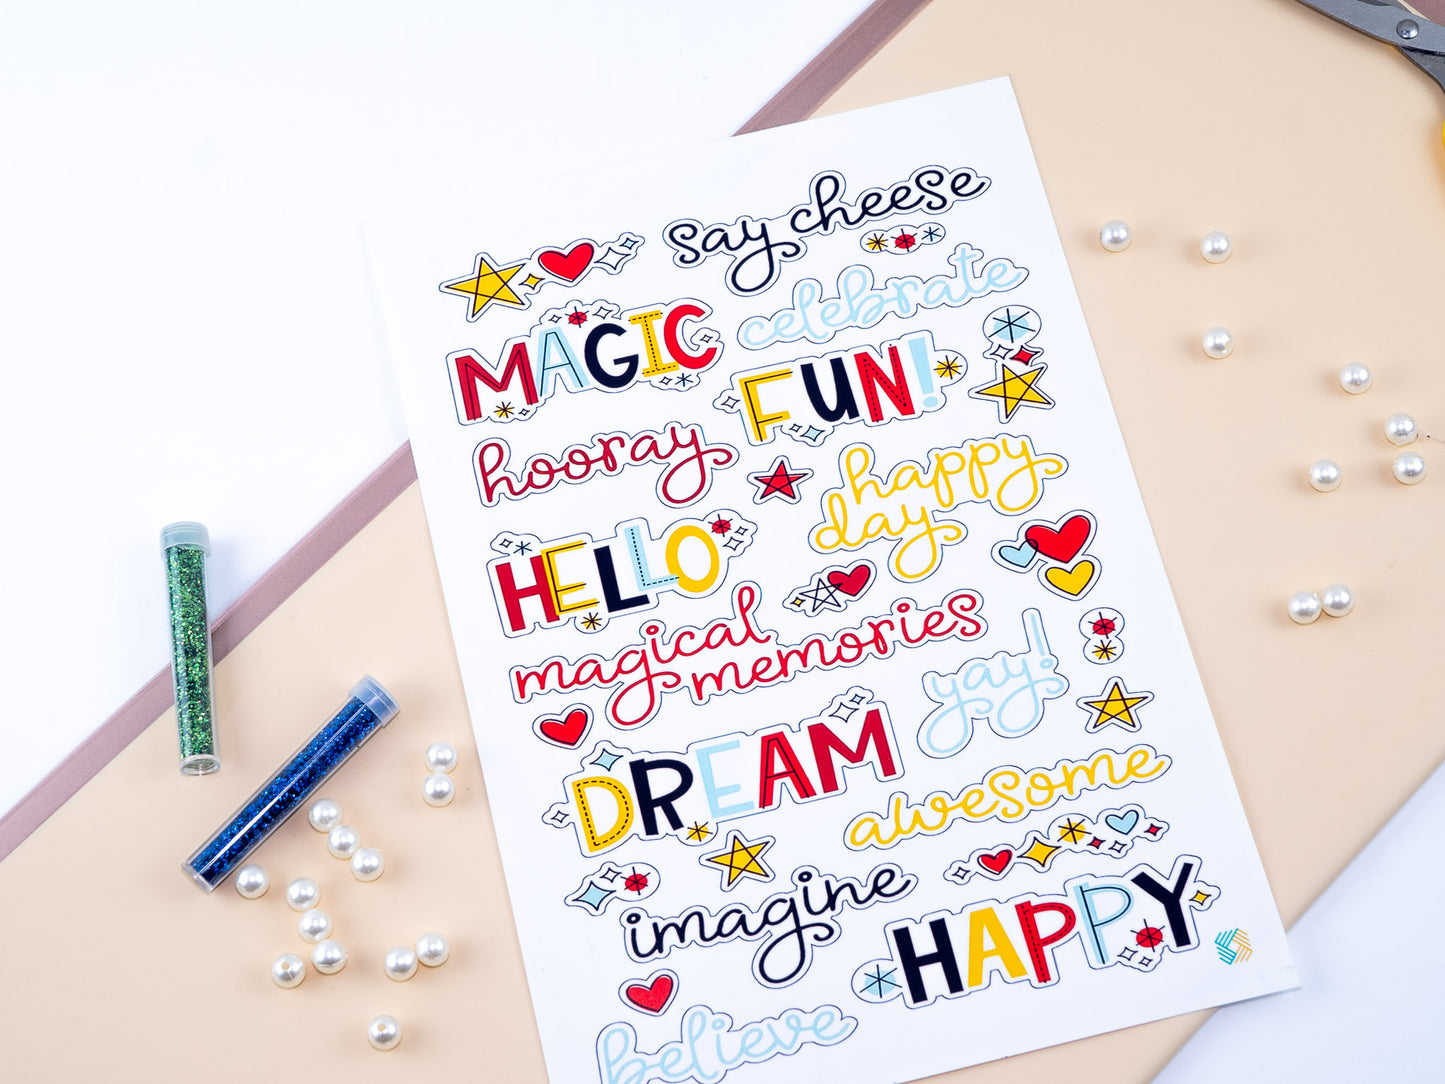 say cheese
celebrate
MAGIC
FUN!
hooray
happy
day
HELLO
magical
memories
yay!
DREAM
awesome
imagine
HAPPY
believe